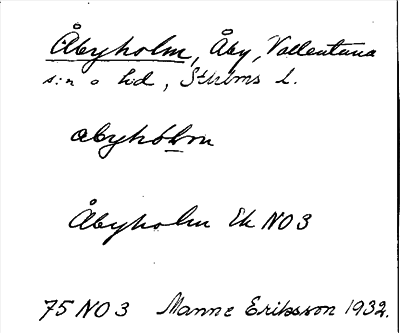 Åbyholm, Åby, Vallentuna
s:n o hd, Sthlms l.
abyhólm
Åbyholm Ek NO3
75 NO 3 Manne Eriksson 1932.